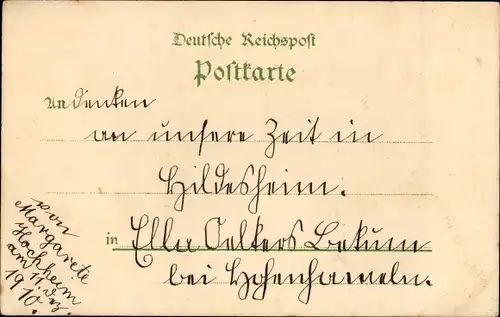 Deutsche Reichspost
Postkarte
Andenken
an unsere Zeit in
Hildesheim.
in Ella Oelkers Bekum
bei Hohenhameln.
von
Margarete
Hochheim
am 11.
1910.